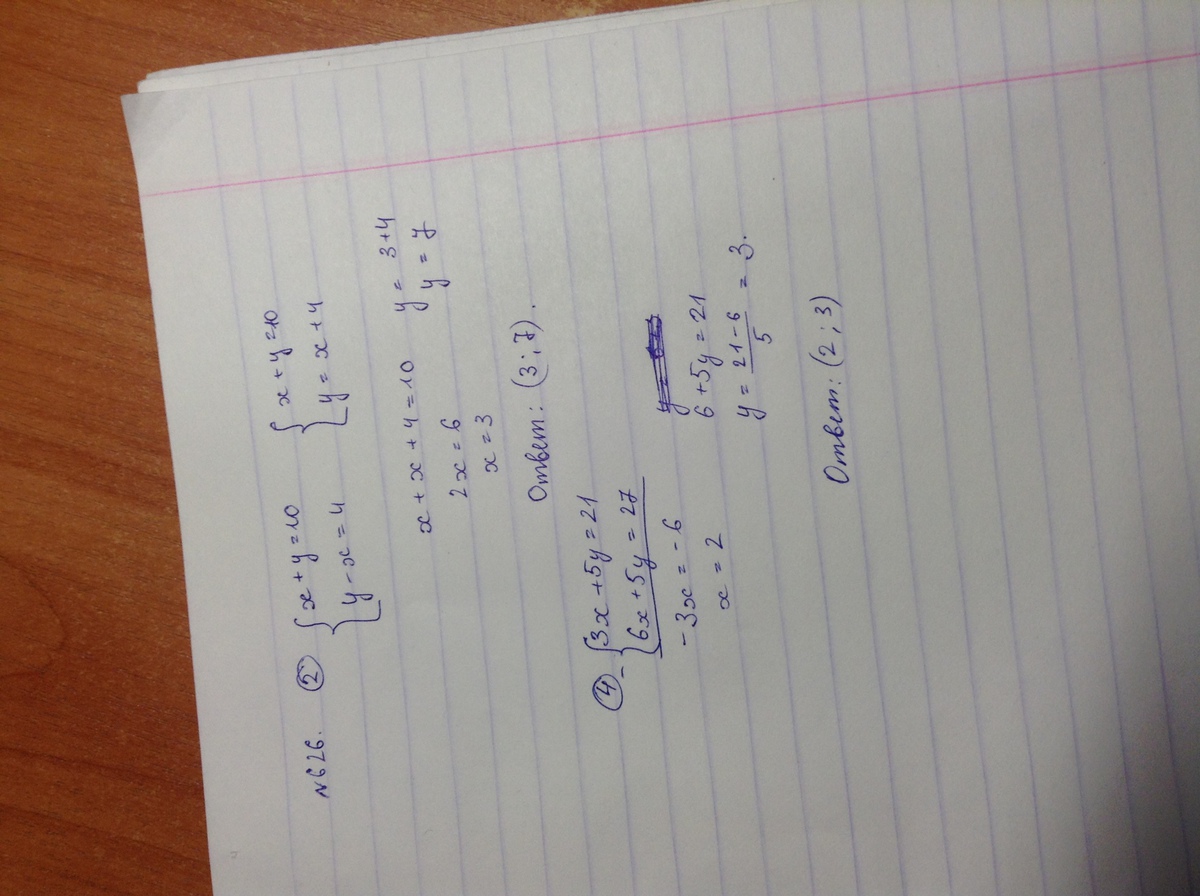 №626. ② { x + y = 10 { x + y = 10
y - x = 4 y = x + 4
x + x + 4 = 10 y = 3 + 4
2x = 6 y = 7
x = 3
Ответ: (3; 7).
④ - { 3x + 5y = 21
6x + 5y = 27
-3x = -6 6 + 5y = 21
x = 2 y = \frac{21 - 6}{5} = 3.
Ответ: (2; 3)